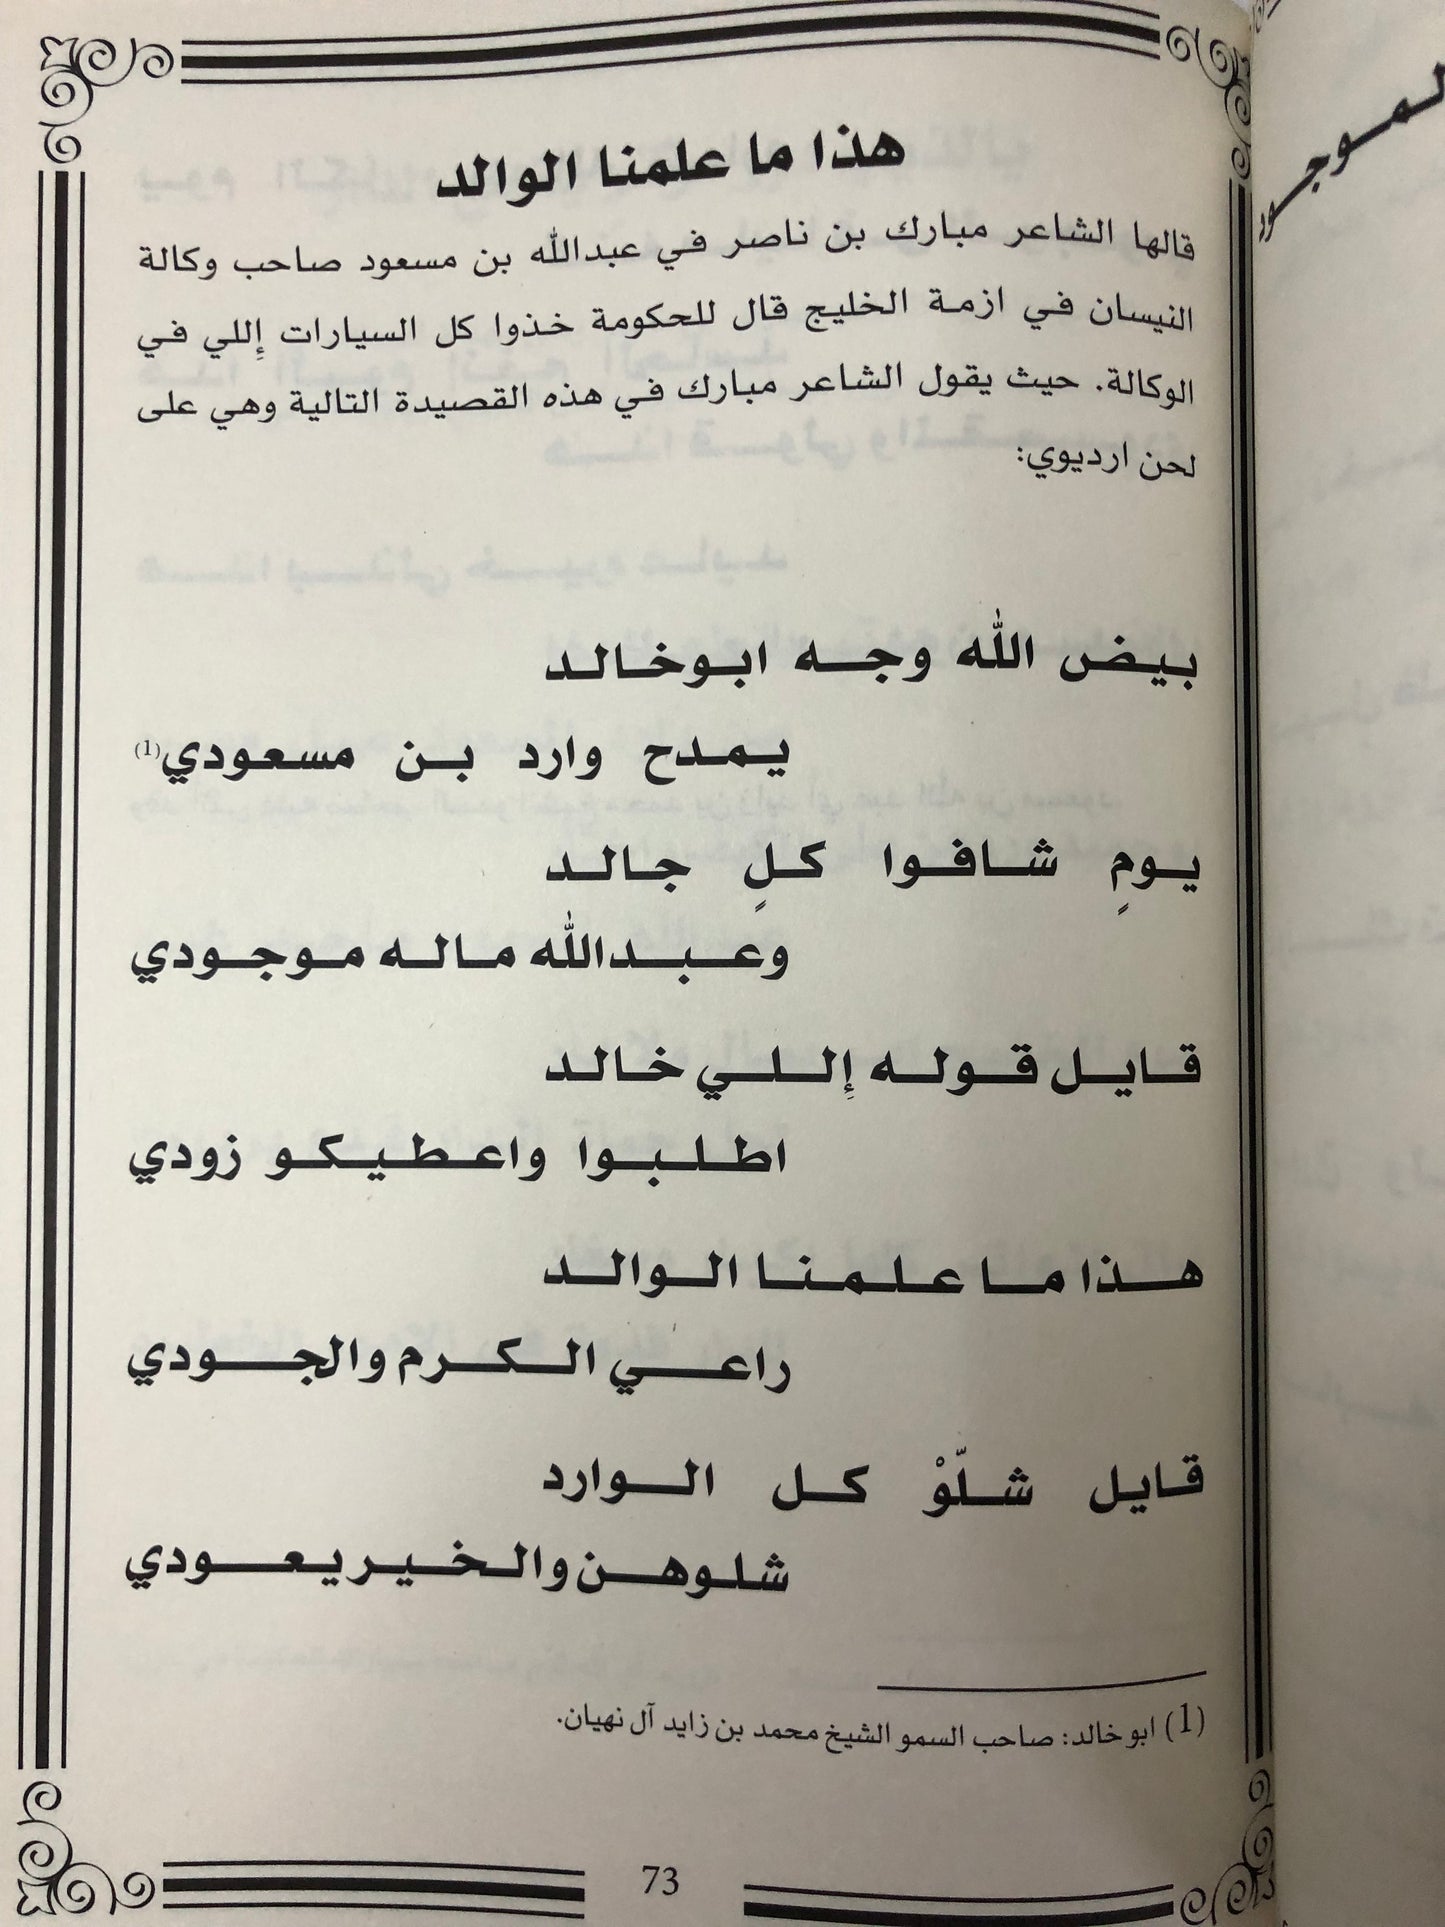 هذا ما علمنا الوالد
قالها الشاعر مبارك بن ناصر في عبدالله بن مسعود صاحب وكالة
النيسان في ازمة الخليج قال للحكومة خذوا كل السيارات إللي في
الوكالة. حيث يقول الشاعر مبارك في هذه القصيدة التالية وهي على
لحن ارديوي:
بيض الله وجه ابوخالد
يمدح وارد بن مسعودي(1)
يومٍ شافوا كلٍ جالد
وعبدالله ماله موجودي
قايل قوله إللي خالد
اطلبوا واعطيكو زودي
هذا ما علمنا الوالد
راعي الكرم والجودي
قايل شلّوْ كل الوارد
شلوهن والخير يعودي
(1) ابو خالد: صاحب السمو الشيخ محمد بن زايد آل نهيان.
73